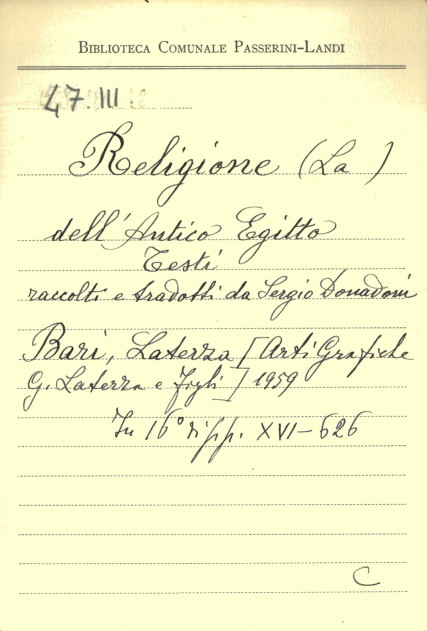 BIBLIOTECA COMUNALE PASSERINI-LANDI
47. III
Religione (La)
dell'Antico Egitto
Testi
raccolti e tradotti da Sergio Donadoni
Bari, Laterza [Arti Grafiche
G. Laterza e Figli] 1959
In 16° di pp. XVI-626
C